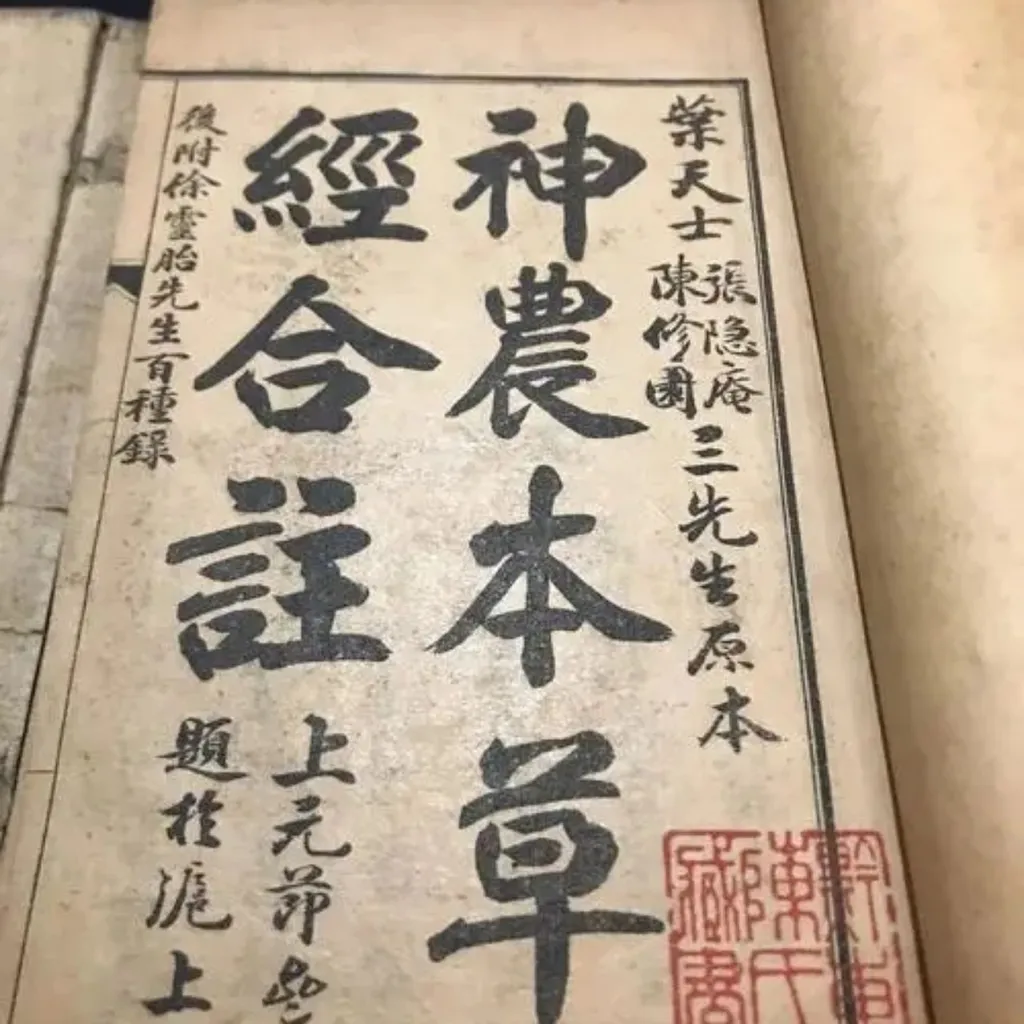 葉天士
張隐庵
陳修園
三先生原本
神農本草
經合註
上元節
題於滬上
後附徐靈胎先生百種録